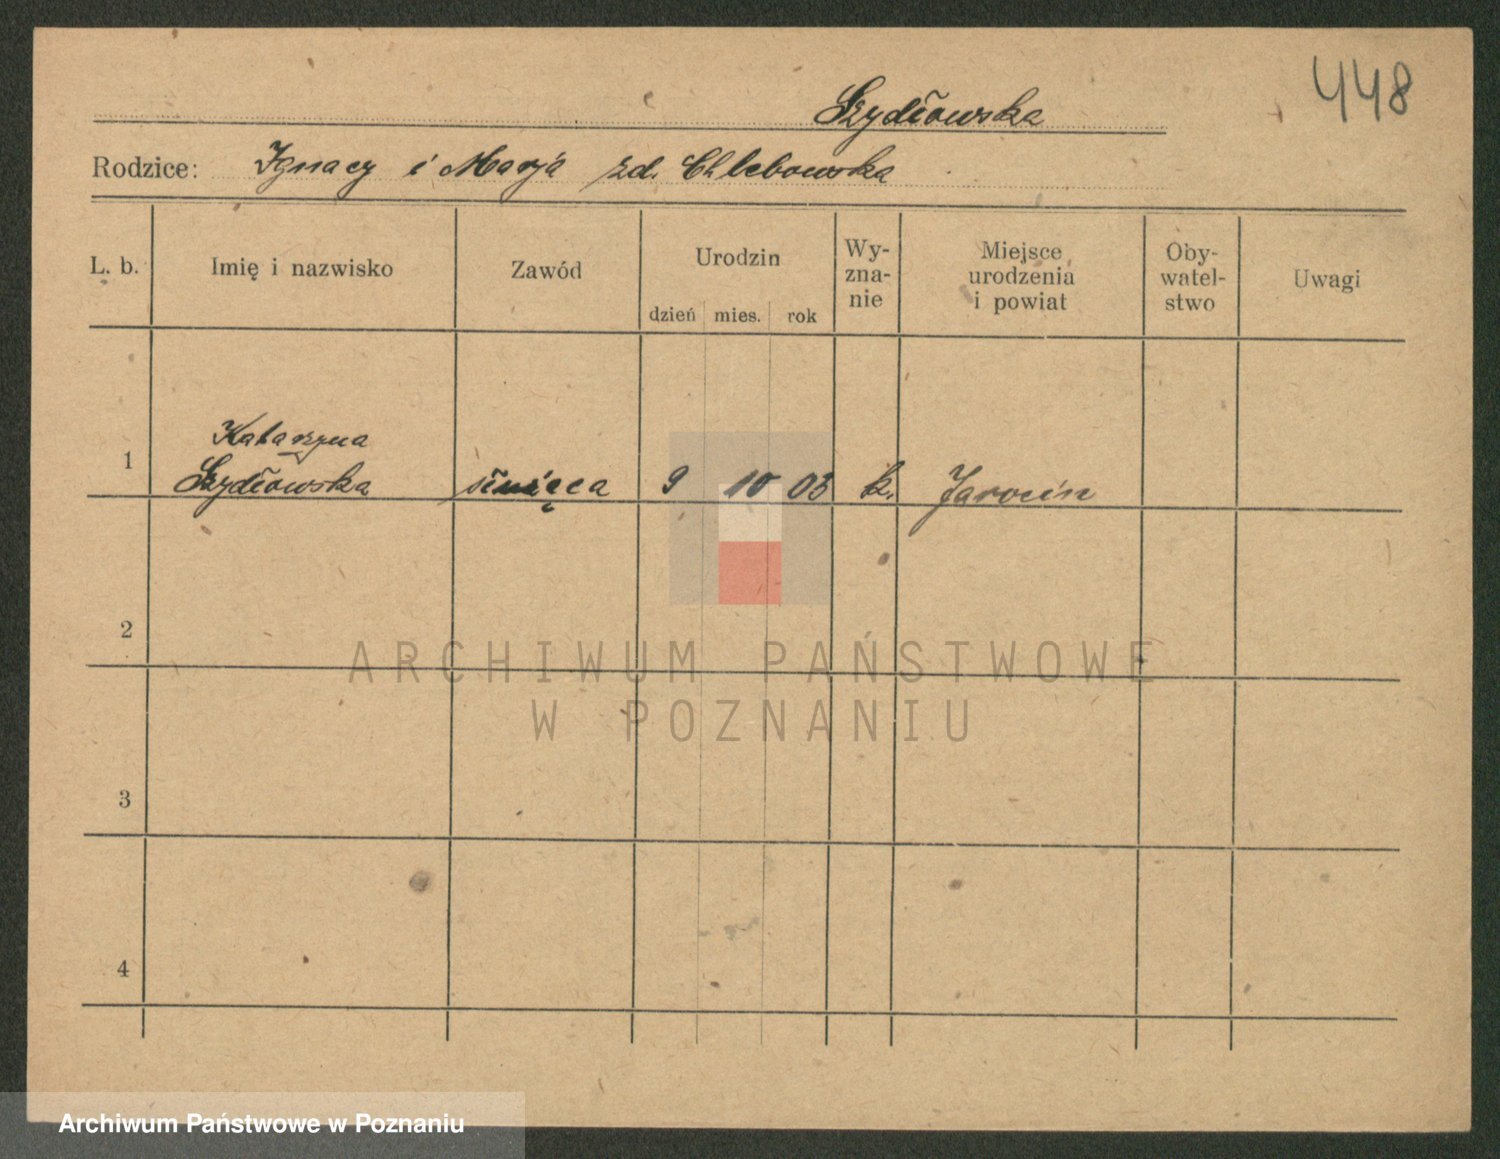 448
Szydłowska
Rodzice: Ignacy i Marja zd. Chlebowska
L. b. Imię i nazwisko Zawód Urodzin Wy-zna-nie Miejsce urodzenia i powiat Oby-watel-stwo Uwagi
dzień mies. rok
1 Katarzyna
Szydłowska służąca 9 10 03 k. Jarocin
2
ARCHIWUM PAŃSTWOWE
W POZNANIU
3
4
Archiwum Państwowe w Poznaniu